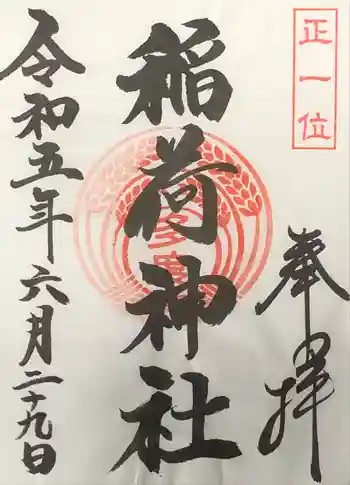 正一位
奉拝
稲荷神社
令和五年六月二十九日